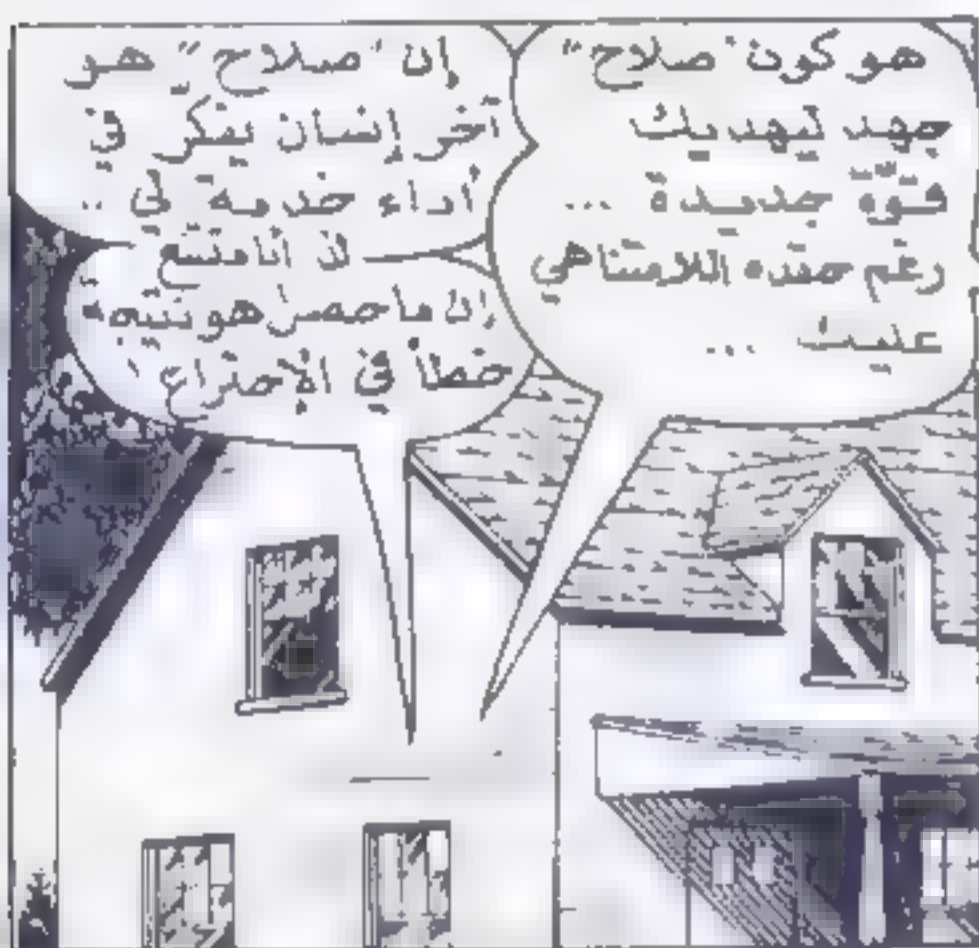 هو كون "صلاح"
جهد ليهديك
قوّة جديدة ...
رغم حقده اللامتناهي
عليك ...
إن "صلاح" هو
آخر إنسان يفكر في
أداء خدمة لي ..
أنا مقتنع
ان ما حصل هو نتيجة
خطأ في الإختراع !